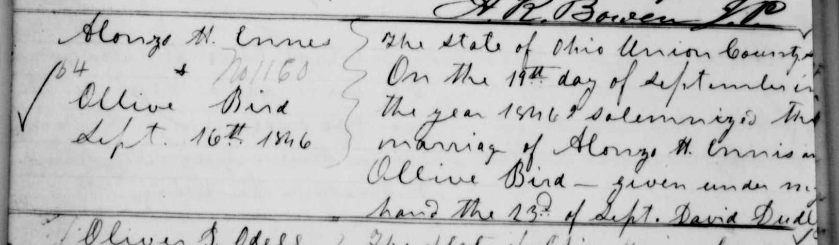 A. R. Bowen J.P.
Alonzo H. Ennes
64 & No 1160
Ollive Bird
Sept. 16th 1846
The State of Ohio Union County
On the 19th day of September in
the year 1846 I solemnized the
marriag of Alonzo H. Ennis an
Ollive Bird – given under my
hand the 23d of Sept. David Dudl
Oliver Odell
The State of Ohio Union